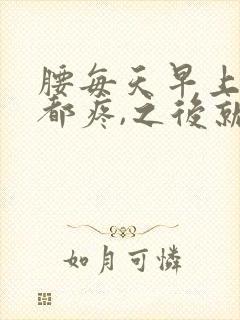 腰每天早上
都疼,之後就
如月可憐